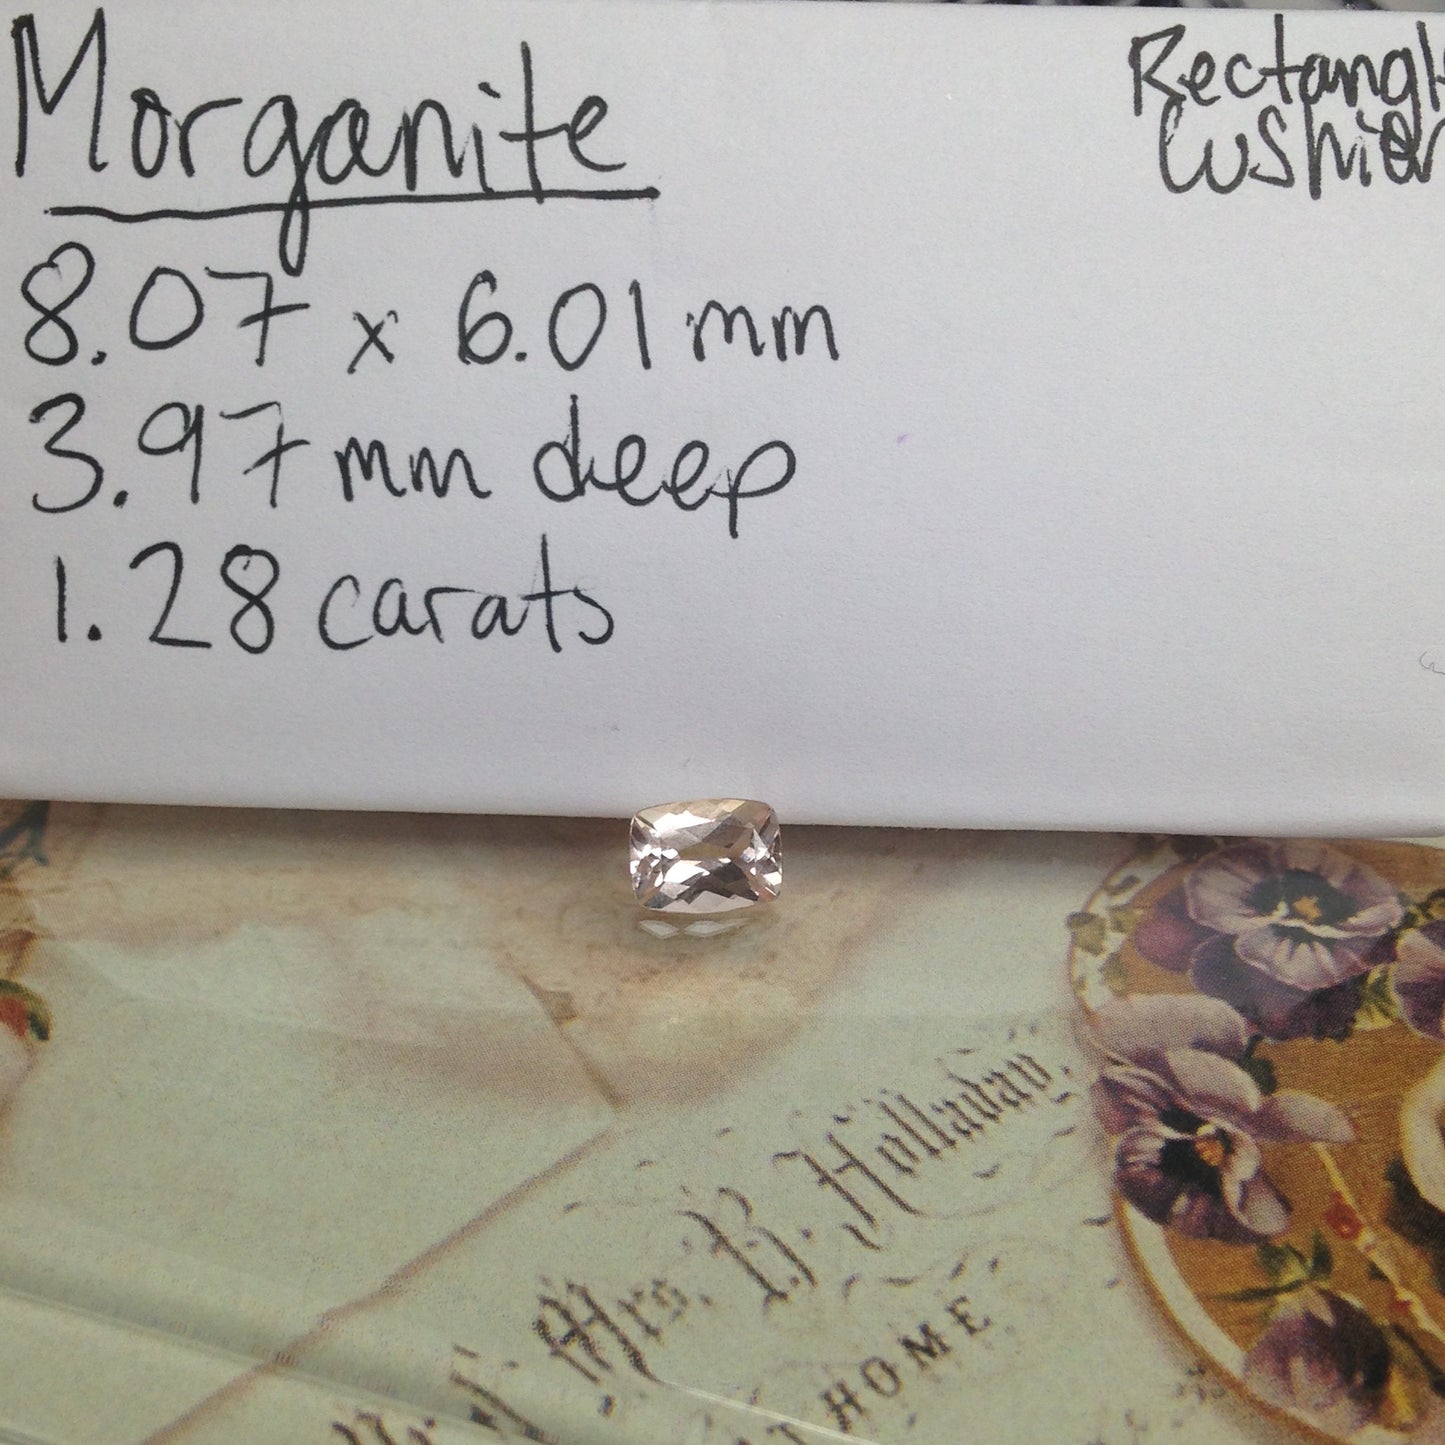 Morganite
Rectangl
Cushion
8.07 x 6.01 mm
3.97 mm deep
1.28 carats
Mrs. B. Holladay.
HOME